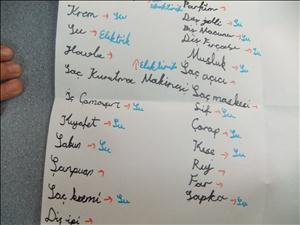 Krem → Su
Su → Elektrik
Havlu →
↑ Elektrik
Saç Kurutma Makinesi
İç Çamaşırı → Su
Kıyafet → Su
Sabun → Su
Şampuan →
Saç kremi → Su
Diş ipi →
Elektrik
Parfüm →
Diş jeli → Su
Diş Macunu → Su
Diş Fırçası → Su
Musluk → Su
Saç açıcı →
Saç maskesi →
Lif → Su
Çorap → Su
Kese → Su
Ruj →
Far →
Şapka → Su